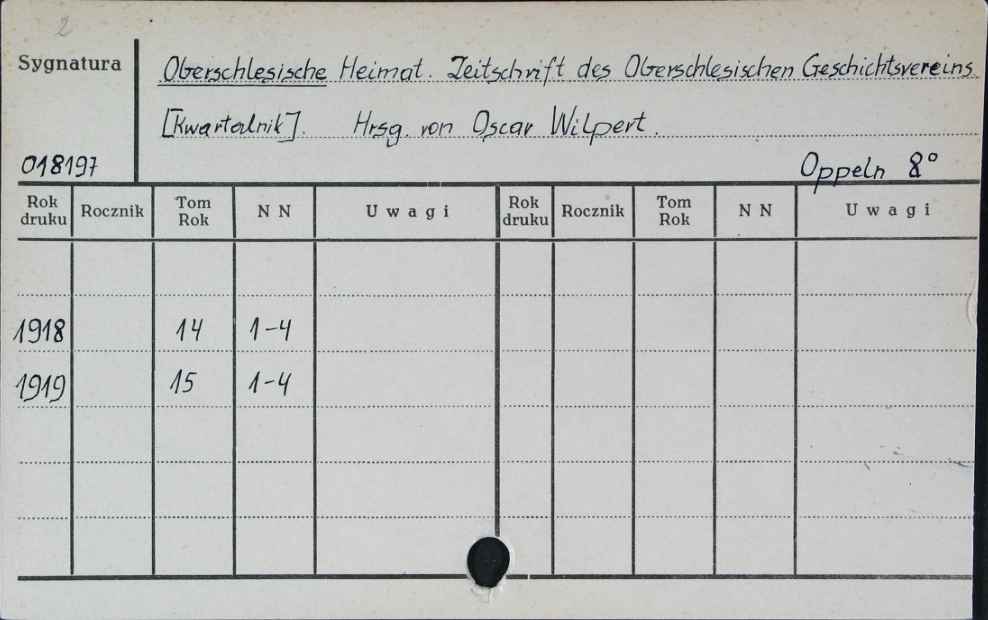 2
Sygnatura
Oberschlesische Heimat. Zeitschrift des Oberschlesischen Geschichtsvereins.
[Kwartalnik]. Hrsg. von Oscar Wilpert.
018197
Oppeln 8°
Rok druku Rocznik Tom Rok N N Uwagi Rok druku Rocznik Tom Rok N N Uwagi
1918 14 1-4
1919 15 1-4